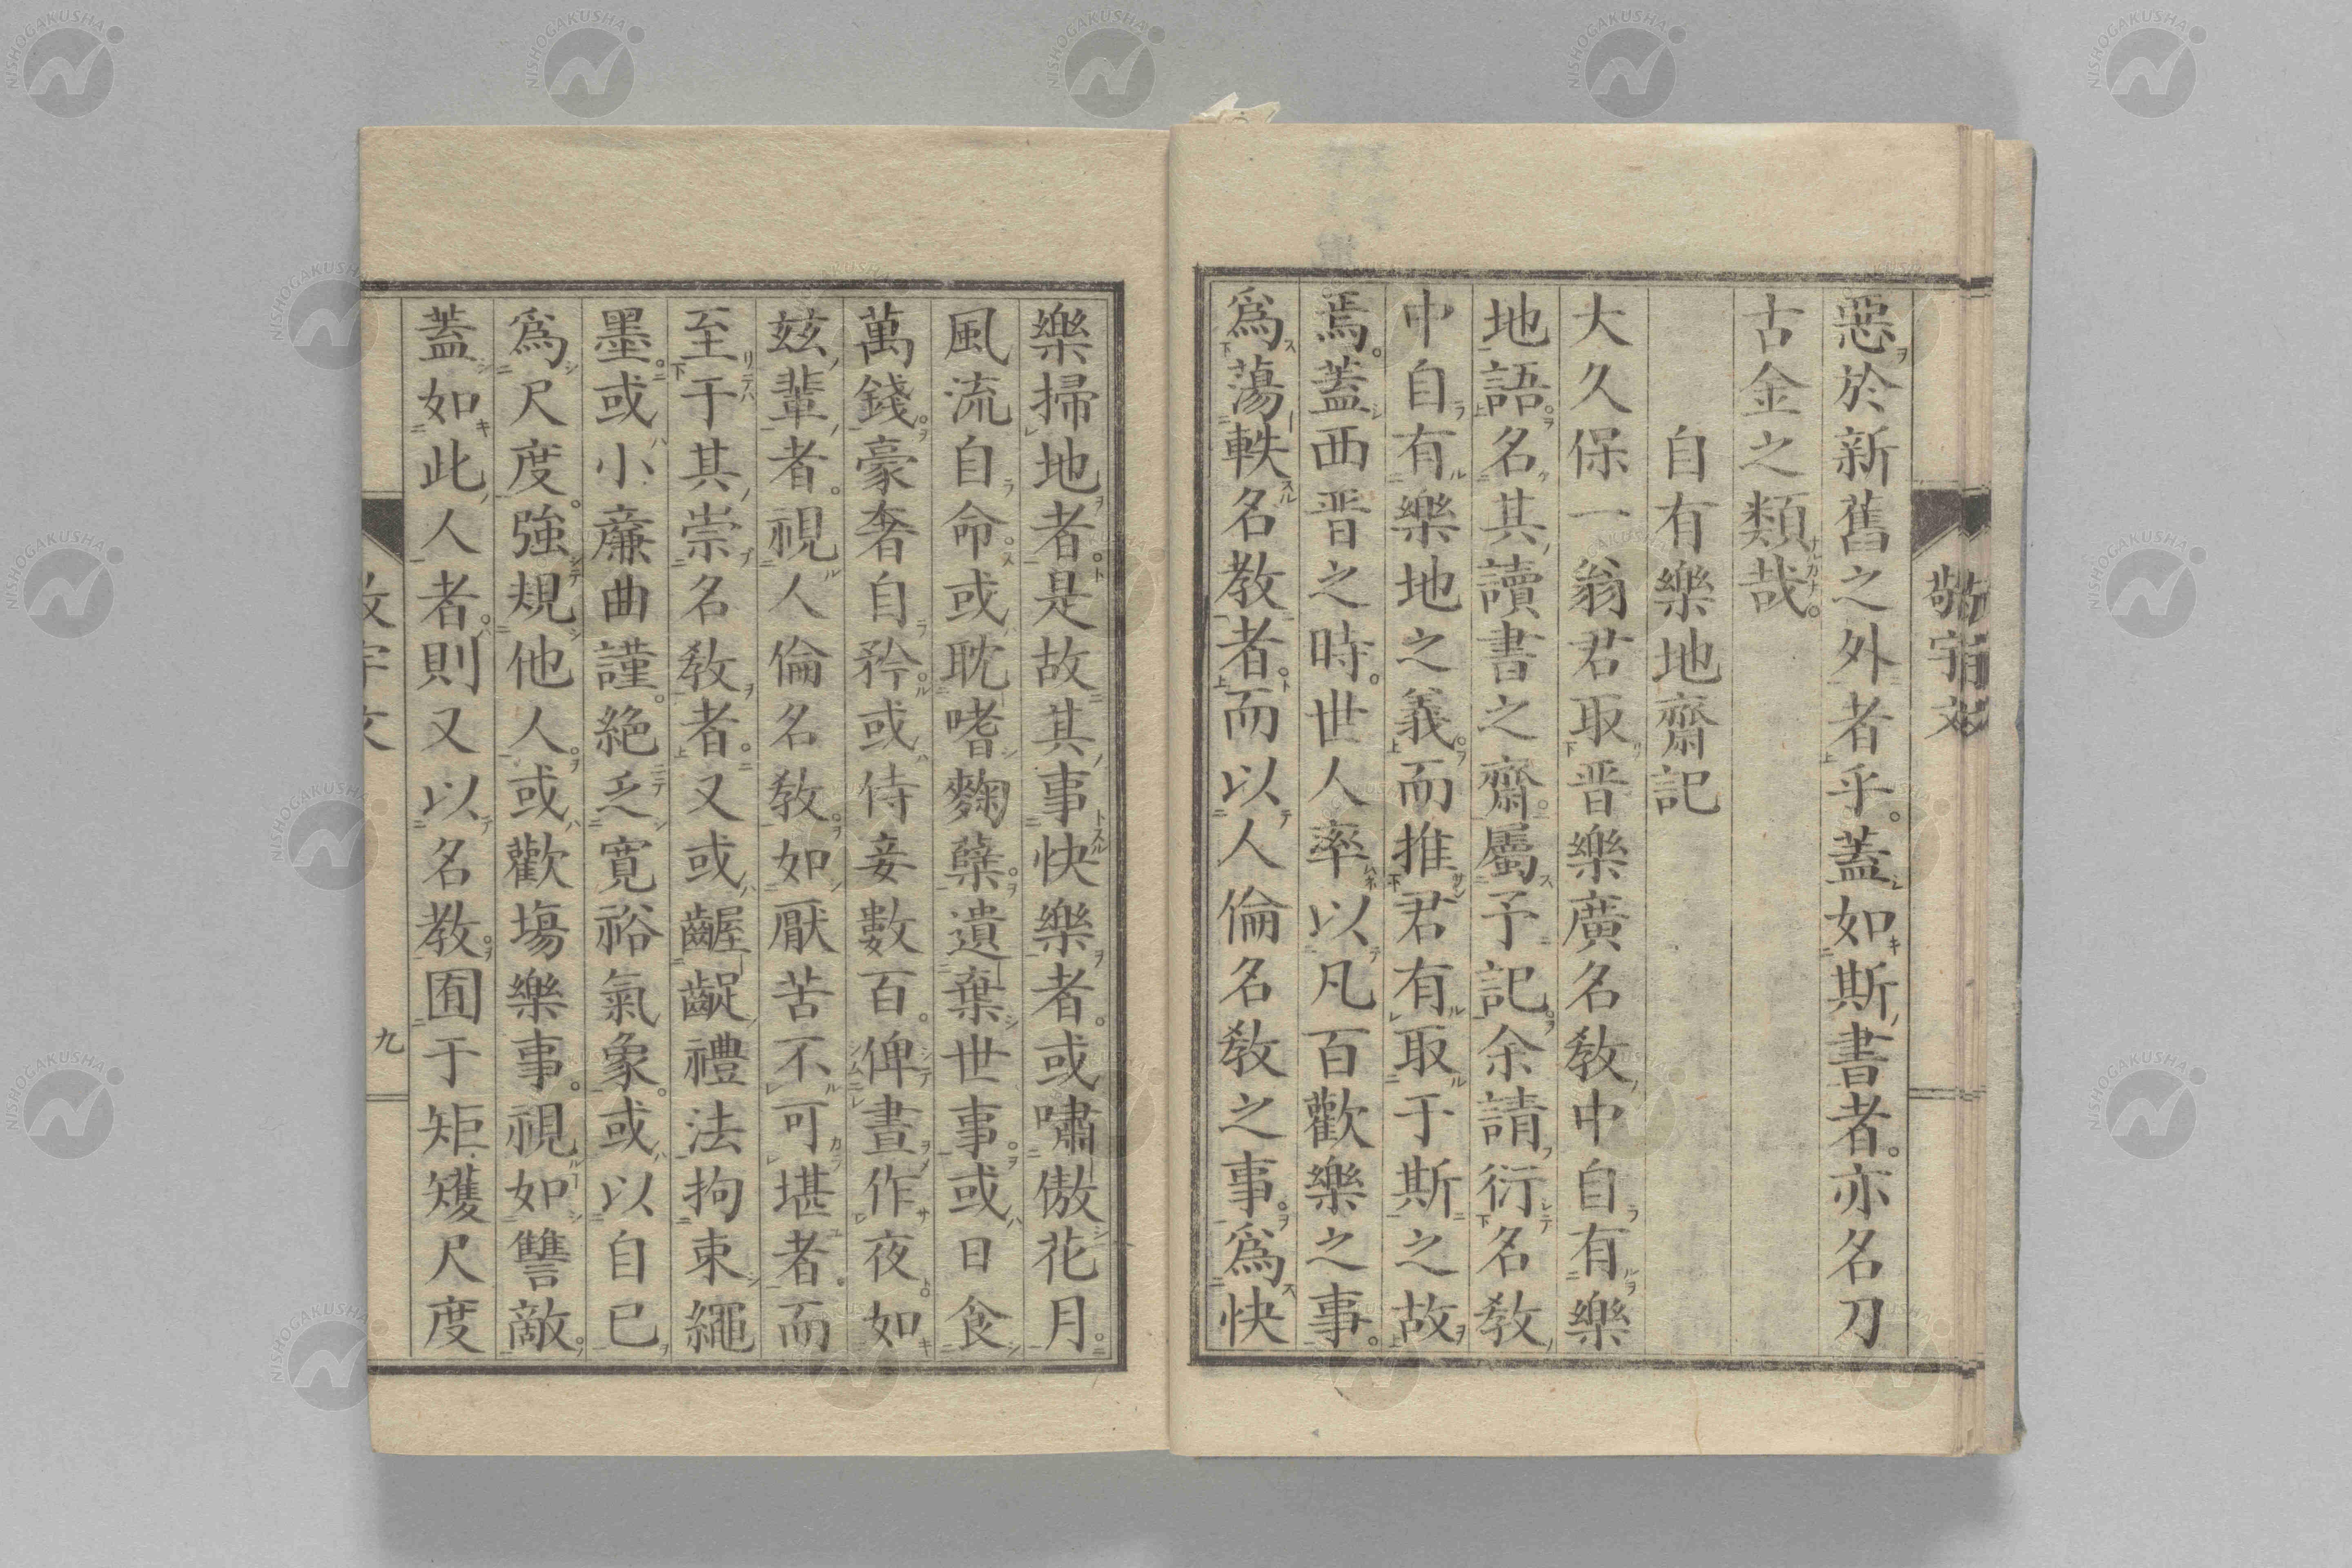 惡於新舊之外者乎。蓋如斯書者。亦名刀
古金之類哉。
自有樂地齋記
大久保一翁君取晋樂廣名敎中自有樂
地語。名其讀書之齋。屬予記。余請衍名敎
中自有樂地之義。而推君有取于斯之故
焉。蓋西晋之時。世人率以凡百歡樂之事。
爲蕩軼名敎者。而以人倫名敎之事。爲快
樂掃地者。是故其事快樂者。或嘯傲花月。
風流自命。或耽嗜麴蘖。遺棄世事。或日食
萬錢。豪奢自矜。或侍妾數百。俾晝作夜。如
玆輩者。視人倫名敎。如厭苦不可堪者。而
至于其崇名敎者。又或齷齪禮法拘束繩
墨。或小廉曲謹。絶乏寛裕氣象。或以自已
爲尺度。強規他人。或歡塲樂事。視如讐敵。
蓋如此人者。則又以名教。囿于矩矱尺度
敬宇文
九